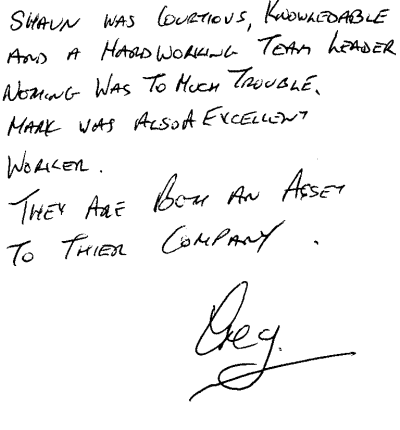 SHAUN WAS COURTIOUS, KNOWLEDABLE
AND A HARDWORKING TEAM LEADER
NOTHING WAS TO MUCH TROUBLE.
MARK WAS ALSO A EXCELLENT
WORKER.
THEY ARE BOTH AN ASSET
TO THIER COMPANY.
Greg.